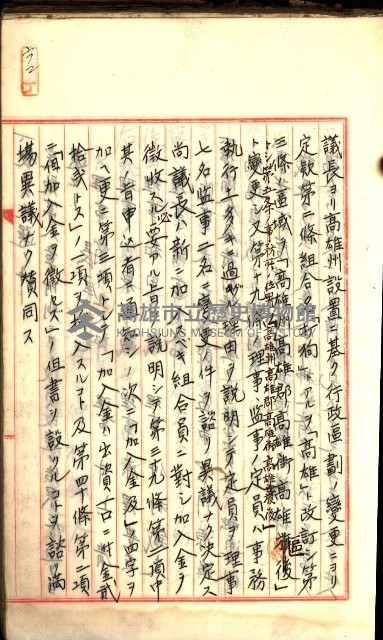 議長ヨリ高雄州設置ニ基ク行政區劃ノ變更ニヨリ
定款第二條組合名「打狗」トアルヲ「高雄」ト改訂シ第
三條區域ヲ「高雄州高雄郡高雄街高雄
ト變更シ又第十九條ノ理事監事ノ定員ハ事務
執行上多キニ過グル理由ヲ説明シテ定員ヲ理事
七名監事二名ニ變更ノ件ヲ諮リ異議ナク決定ス
尚議長ハ新ニ加入スベキ組合員ニ對シ加入金ヲ
徴收スル必要アル旨ヲ説明シテ第三十九條第一項中
其ノ旨申込者ニ通知シノ次ニ「加入金及」ノ四字ヲ
加ヘ更ニ第三項トシテ「加入金ハ出資一口ニ付金貳
拾貳トス」ノ一項ヲ挿入スルコト及第四十條第二項
ニ「但加入金ヲ徴セズ」ノ但書ヲ設クルコトヲ諮リ滿
場異議ナク賛同ス
高雄市立歷史博物館
KAOHSIUNG MUSEUM OF HISTORY